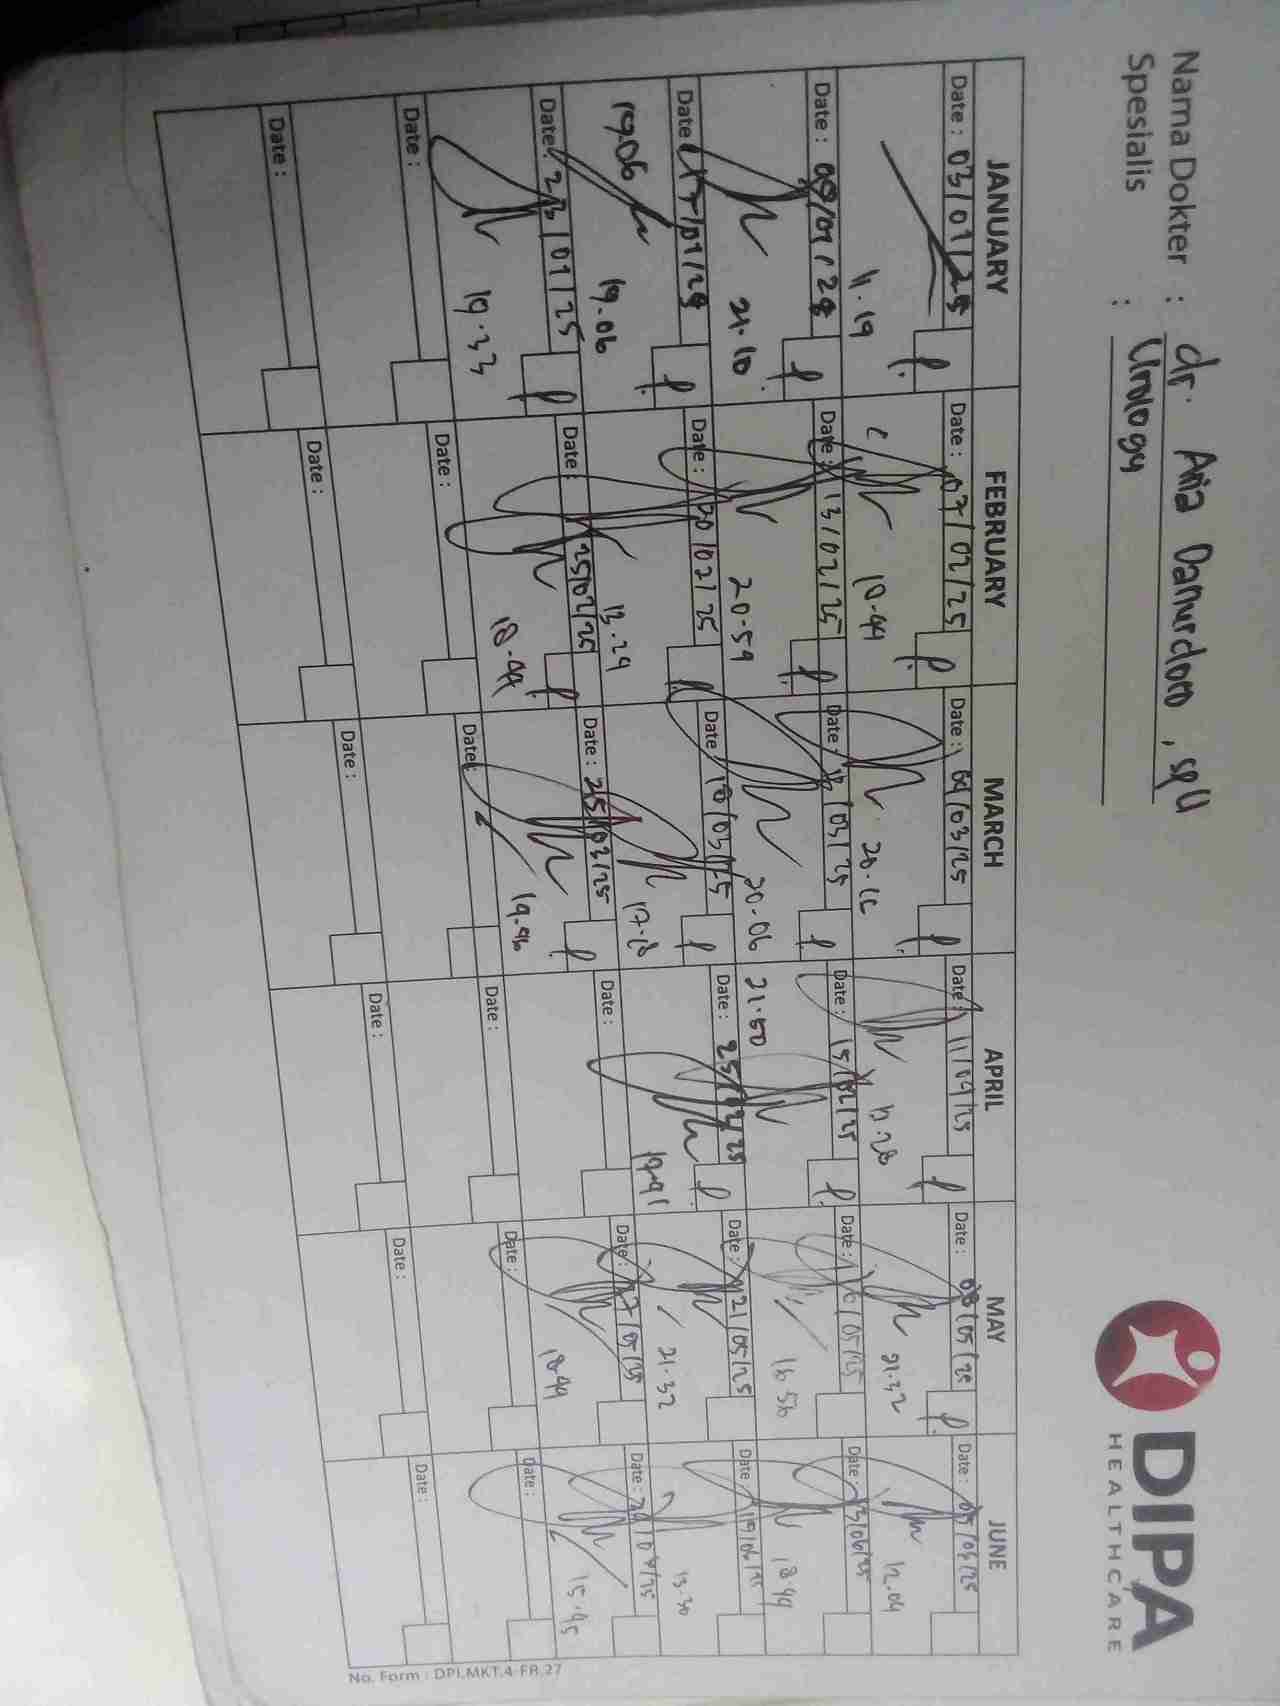 Nama Dokter : dr. Aria Danurdoro, SpU
Spesialis : Urology
DIPA
HEALTHCARE
JANUARY FEBRUARY MARCH APRIL MAY JUNE
Date : 03/01/25 Date : 07/02/25 Date : 04/03/25 Date : 11/04/25 Date : 08/05/25 Date :
11.19 10.44 20.12 21.32 12.04
Date : 09/01/25 Date : 13/02/25 Date : /03/25 Date : Date : 16/05/25 Date : 13/06/25
21.10 20.59 20.06 21.50 18.56 18.44
Date : 17/01/25 Date : 20/02/25 Date : 18/03/25 Date : 25/ /25 Date : 21/05/25 Date : 19/06/25
19.06 19.06 13.29 17.18 19.41 21.32 13.30
Date : 23/01/25 Date : 25/02/25 Date : 25/03/25 Date : Date : 27/05/25 Date :
19.33 18.44 19.46 18.44 15.45
Date : Date : Date : Date : Date : Date :
Date : Date : Date : Date : Date : Date :
No. Form : DPI.MKT.4-FR.27